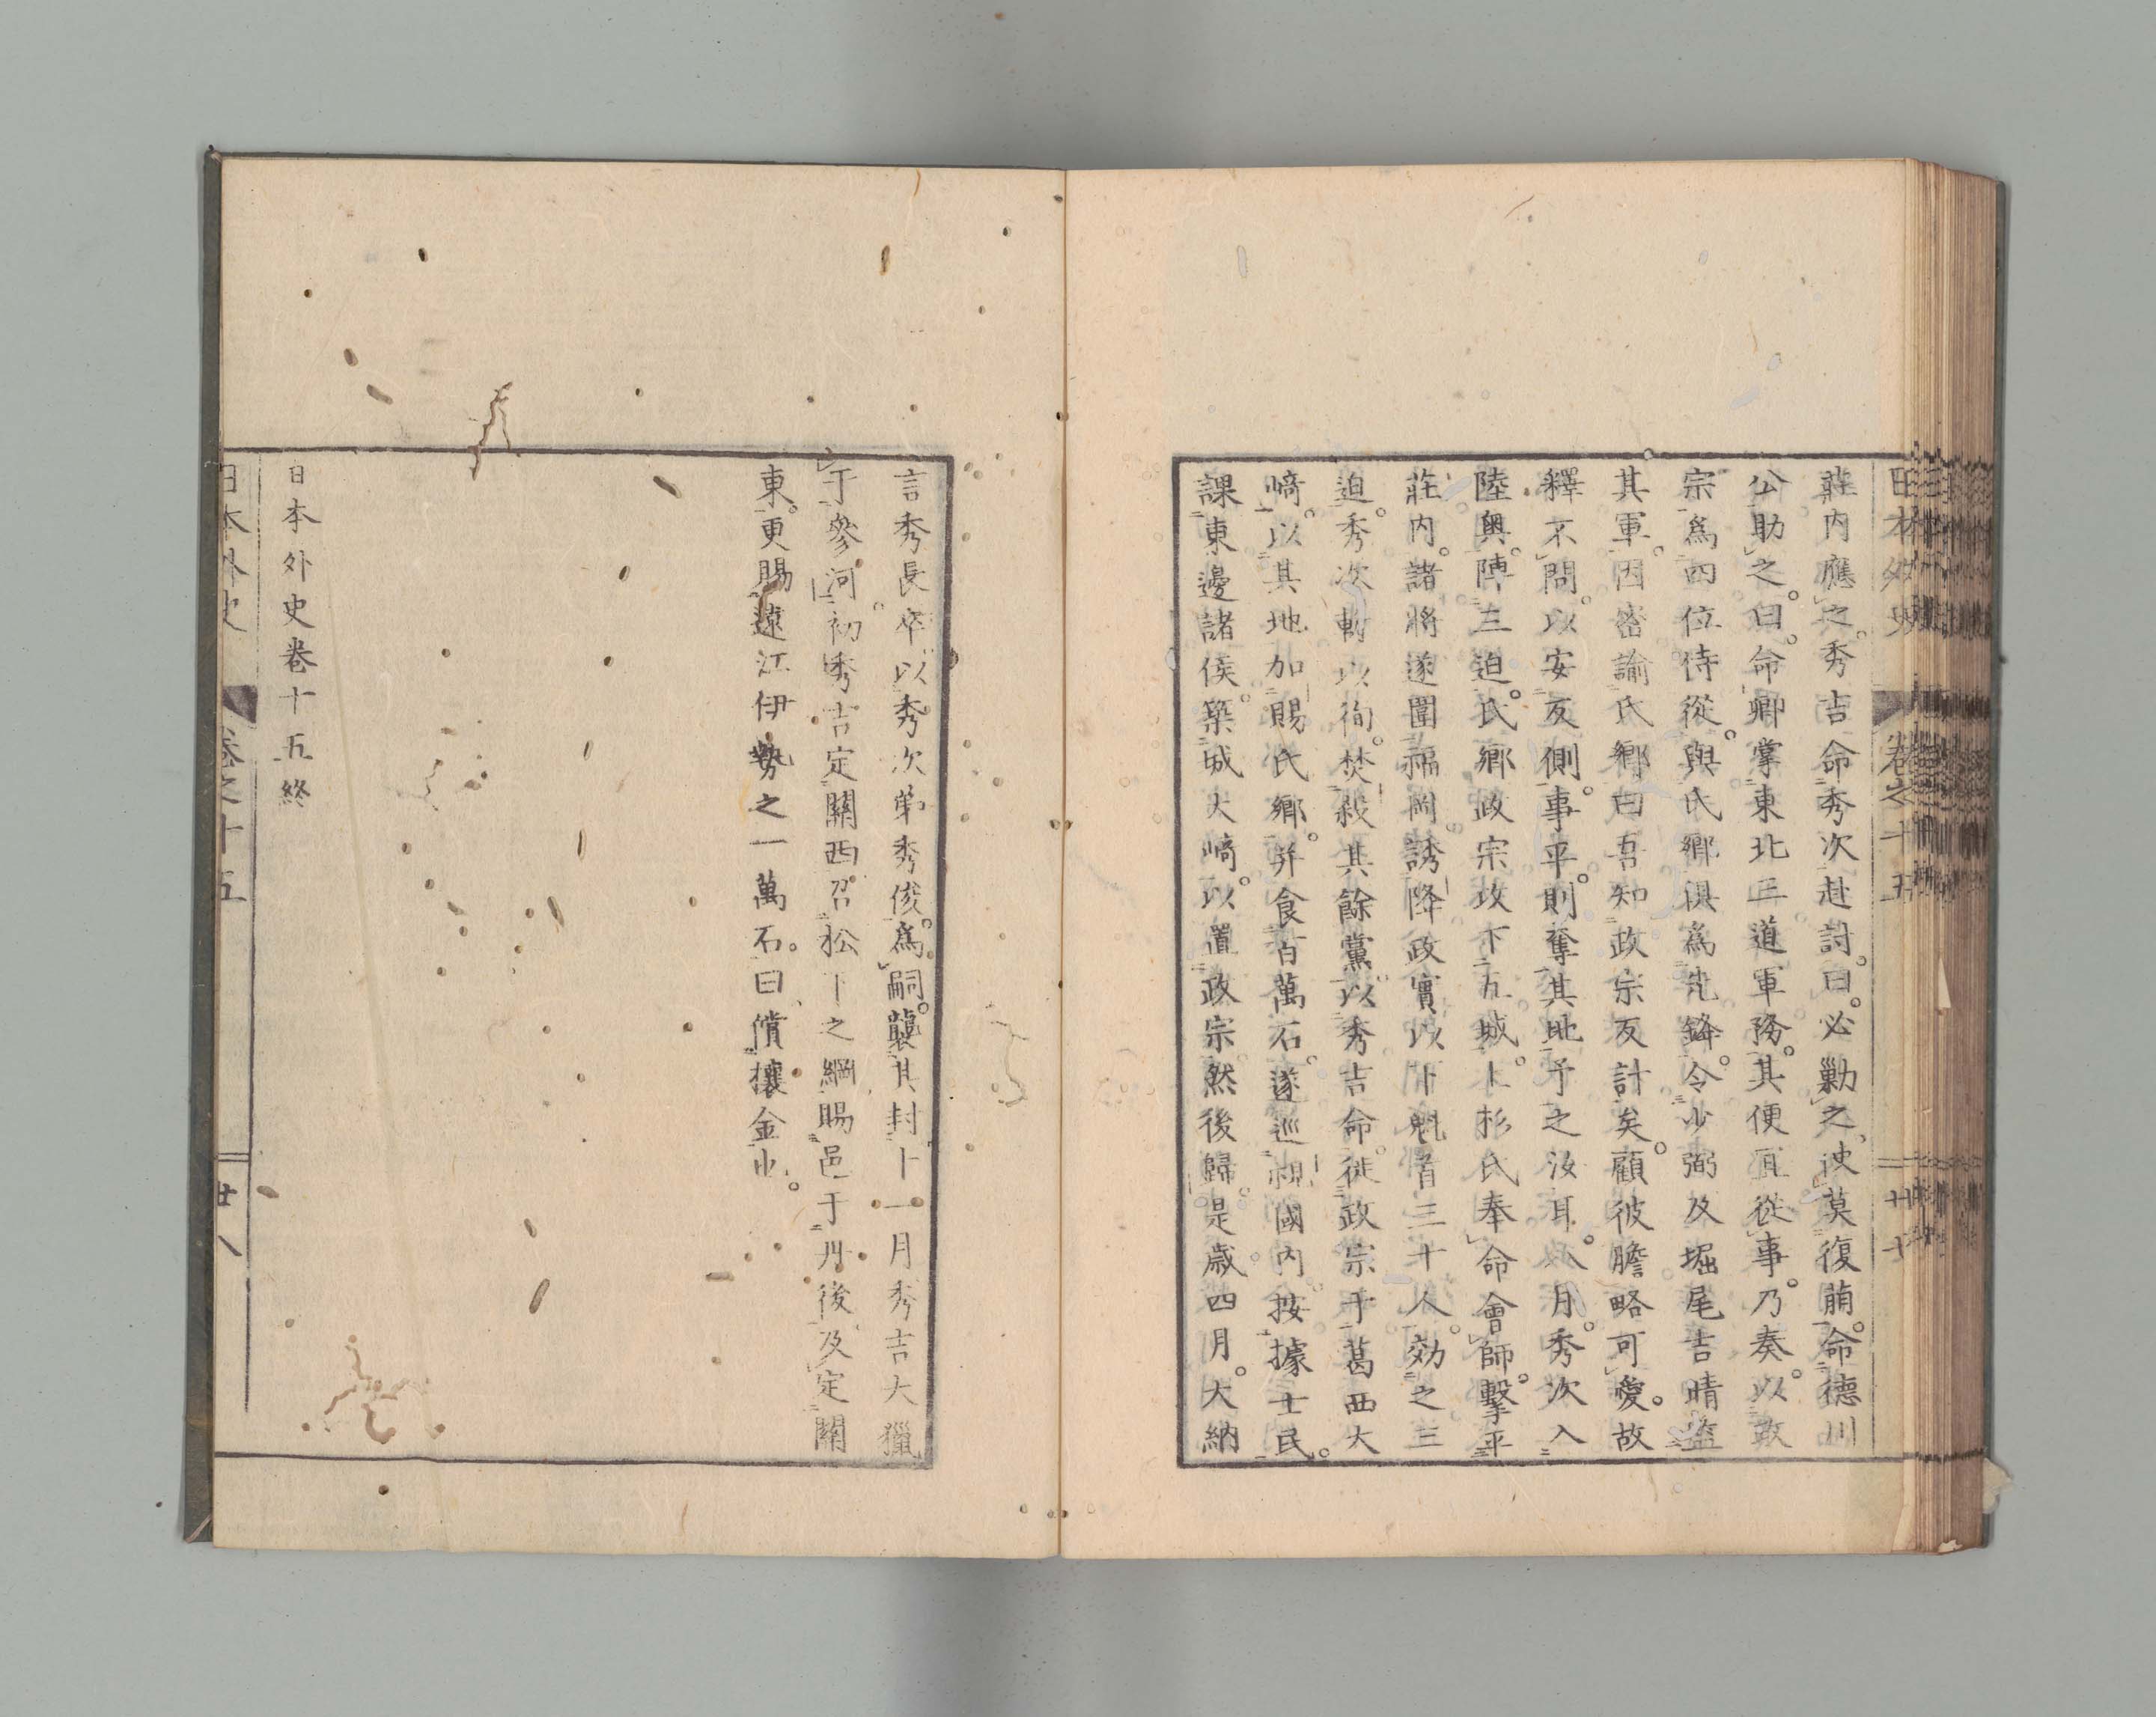 日本外史 卷之十五 廿七
莊内應之。秀吉命秀次赴討。曰。必勦之、使莫復萠。命德川
公助之。曰。命卿掌東北三道軍務。其便宜從事。乃奏。以政
宗爲四位侍從。與氏鄉俱爲先鋒。令少弼及堀尾吉晴監
其軍。因密諭氏鄉曰吾知政宗反計矣。顧彼膽略可愛。故
釋不問。以安反側。事平。則奪其地予之汝耳。八月。秀次入
陸奥。陣三迫。氏鄉政宗攻下五城。上杉氏奉命會師。擊平
莊内。諸將遂圍福岡。誘降政實以下魁首三十人。効之三
迫。秀次斬以徇。焚殺其餘黨。以秀吉命。徙政宗于葛西大
﨑。以其地加賜氏鄉。并食百萬石。遂巡視國内。按據士民。
課東邊諸侯。築城大﨑。以置政宗然後歸。是歲。四月。大納
言秀長卒以秀次弟秀俊。爲嗣。襲其封十一月秀吉大獵
于參河。初秀吉定關西召松下之綱賜邑于丹後及定關
東。更賜遠江伊勢之一萬石。曰、償攘金也。
日本外史卷十五終
日本外史 卷之十五 廿八